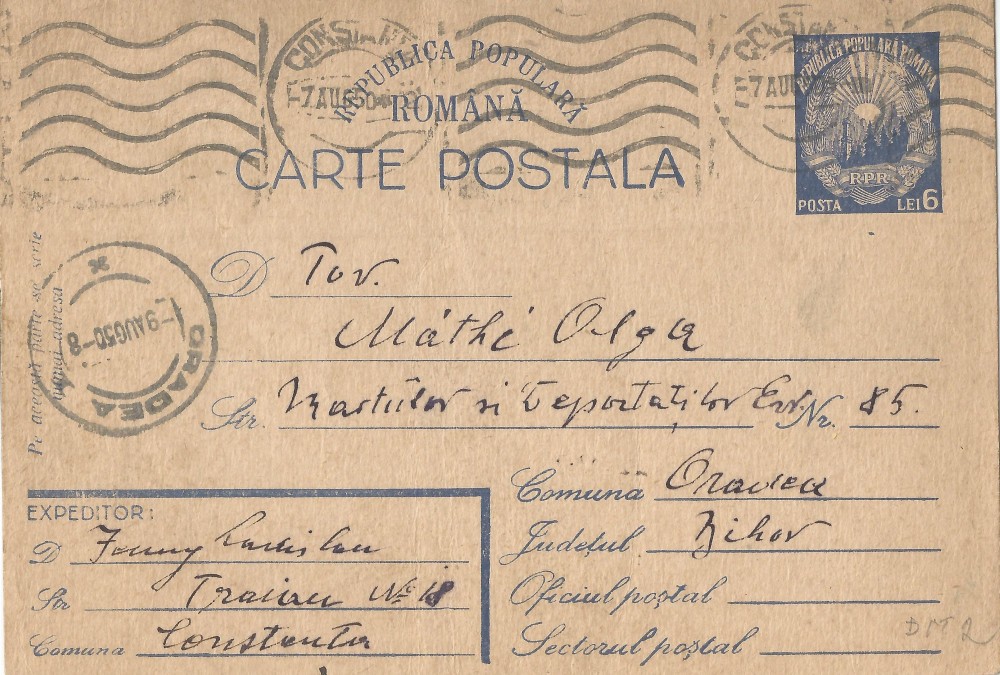 CONSTAN
-7 AUG. 50
REPUBLICA POPULARĂ
ROMÂNĂ
CARTE POSTALA
-7 AUG
REPUBLICA POPULARĂ ROMÂNĂ
RPR
POSTA LEI 6
Pe această parte se scrie
numai adresa
ORADEA
-9 AUG 50-8
D Tov.
Máthé Olga
Str. Martirilor si Deportaților Evr. Nr. 85.
Comuna Oradea
Judeţul Bihor
Oficiul poştal
Sectorul poştal
EXPEDITOR:
D Ladislau
Str Traian No 18
Comuna Constanta
DMT 2